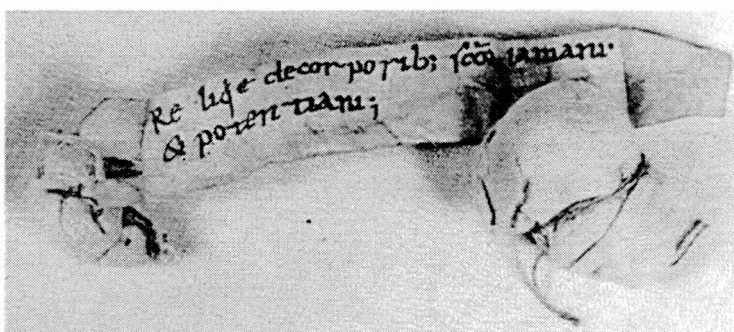 Re liqe decorporib; ſcōꝝ iamani·
& poten tiani;